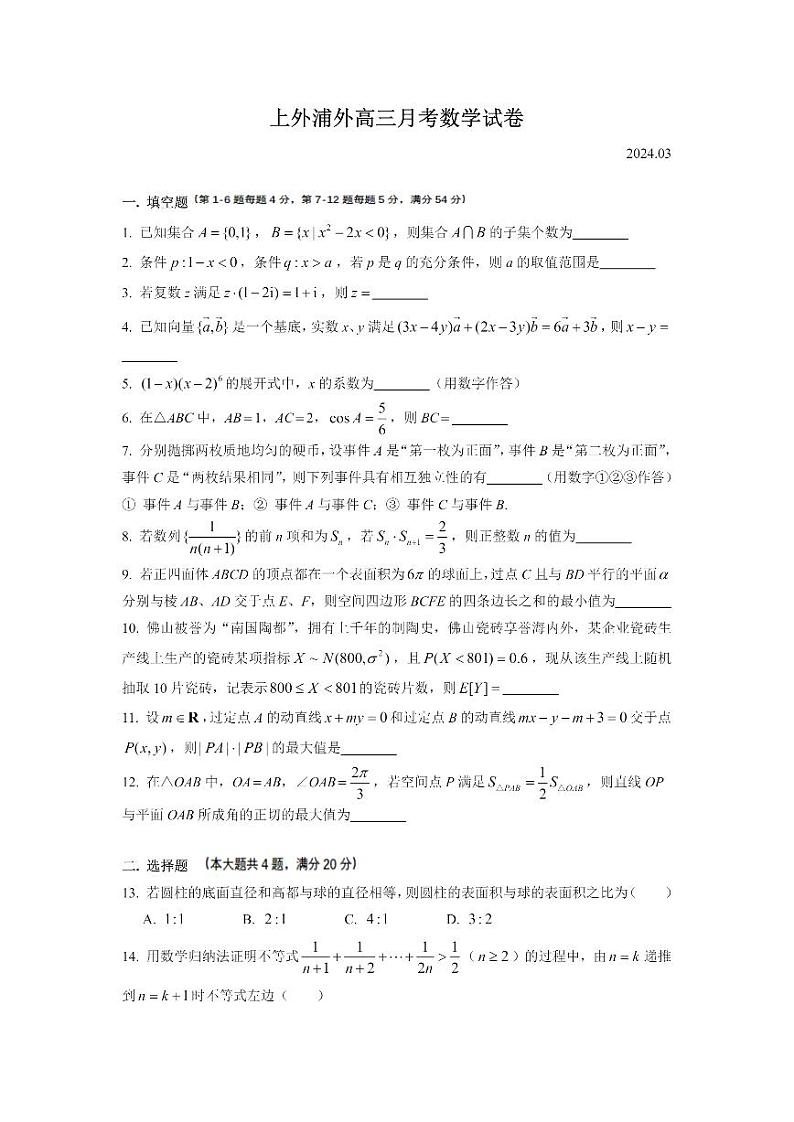 上外浦外高三月考数学试卷
2024.03
一. 填空题（第 1-6 题每题 4 分，第 7-12 题每题 5 分，满分 54 分）
1. 已知集合 A = {0,1}，B = {x | x² − 2x < 0}，则集合 A⋂B 的子集个数为________
2. 条件 p :1 − x < 0，条件 q : x > a，若 p 是 q 的充分条件，则 a 的取值范围是________
3. 若复数 z 满足 z·(1− 2i) = 1+ i，则 z = ________
4. 已知向量{a⃗,b⃗}是一个基底，实数 x、y 满足 (3x − 4y)a⃗ + (2x − 3y)b⃗ = 6a⃗ + 3b⃗，则 x − y =
________
5. (1− x)(x − 2)⁶ 的展开式中，x 的系数为________（用数字作答）
6. 在△ABC 中，AB = 1，AC = 2，cos A = 5/6，则 BC = ________
7. 分别抛掷两枚质地均匀的硬币，设事件 A 是“第一枚为正面”，事件 B 是“第二枚为正面”，
事件 C 是“两枚结果相同”，则下列事件具有相互独立性的有________（用数字①②③作答）
① 事件 A 与事件 B；② 事件 A 与事件 C；③ 事件 C 与事件 B.
8. 若数列{1/(n(n+1))}的前 n 项和为 Sₙ，若 Sₙ · Sₙ₊₁ = 2/3，则正整数 n 的值为________
9. 若正四面体 ABCD 的顶点都在一个表面积为 6π 的球面上，过点 C 且与 BD 平行的平面 α
分别与棱 AB、AD 交于点 E、F，则空间四边形 BCFE 的四条边长之和的最小值为________
10. 佛山被誉为“南国陶都”，拥有上千年的制陶史，佛山瓷砖享誉海内外，某企业瓷砖生
产线上生产的瓷砖某项指标 X ~ N(800,σ²)，且 P(X < 801) = 0.6，现从该生产线上随机
抽取 10 片瓷砖，记表示 800 ≤ X < 801 的瓷砖片数，则 E[Y] = ________
11. 设 m ∈ R，过定点 A 的动直线 x + my = 0 和过定点 B 的动直线 mx − y − m + 3 = 0 交于点
P(x, y)，则 | PA | · | PB | 的最大值是________
12. 在△OAB 中，OA = AB，∠OAB = 2π/3，若空间点 P 满足 S△PAB = 1/2 S△OAB，则直线 OP
与平面 OAB 所成角的正切的最大值为________
二. 选择题 （本大题共 4 题，满分 20 分）
13. 若圆柱的底面直径和高都与球的直径相等，则圆柱的表面积与球的表面积之比为（ ）
A. 1:1 B. 2:1 C. 4:1 D. 3:2
14. 用数学归纳法证明不等式 1/(n+1) + 1/(n+2) + ⋯ + 1/(2n) > 1/2（n ≥ 2）的过程中，由 n = k 递推
到 n = k + 1 时不等式左边（ ）